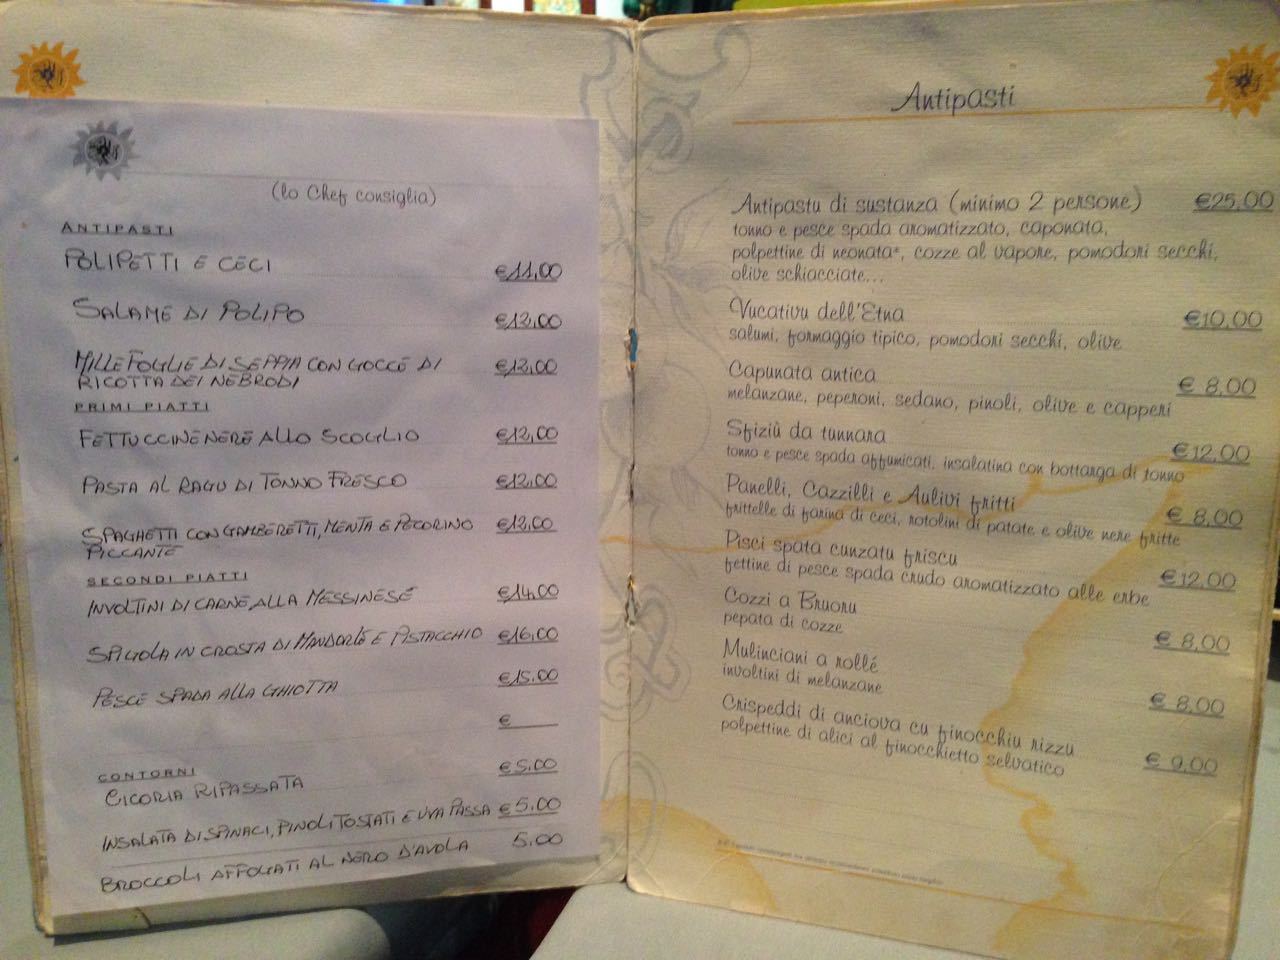 (lo Chef consiglia)
ANTIPASTI
POLIPETTI E CECI €11,00
SALAME DI POLIPO €12,00
MILLEFOGLIE DI SEPPIA CON GOCCE DI
RICOTTA DEI NEBRODI €12,00
PRIMI PIATTI
FETTUCCINE NERE ALLO SCOGLIO €12,00
PASTA AL RAGU DI TONNO FRESCO €12,00
SPAGHETTI CON GAMBERETTI, MENTA E PECORINO €12,00
PICCANTE
SECONDI PIATTI
INVOLTINI DI CARNE ALLA MESSINESE €14,00
SPIGOLA IN CROSTA DI MANDORLE E PISTACCHIO €16,00
PESCE SPADA ALLA GHIOTTA €15,00
€
CONTORNI
CICORIA RIPASSATA €5,00
INSALATA DI SPINACI, PINOLI TOSTATI E UVA PASSA €5,00
BROCCOLI AFFOGATI AL NERO D'AVOLA 5,00
Antipasti
Antipastu di sustanza (minimo 2 persone) €25,00
tonno e pesce spada aromatizzato, caponata,
polpettine di neonata*, cozze al vapore, pomodori secchi,
olive schiacciate...
Vucativu dell'Etna €10,00
salumi, formaggio tipico, pomodori secchi, olive
Capunata antica € 8,00
melanzane, peperoni, sedano, pinoli, olive e capperi
Sfiziù da tunnara €12,00
tonno e pesce spada affumicati, insalatina con bottarga di tonno
Panelli, Cazzilli e Aulivi fritti € 8,00
frittelle di farina di ceci, rotolini di patate e olive nere fritte
Pisci spata cunzatu friscu €12,00
fettine di pesce spada crudo aromatizzato alle erbe
Cozzi a Bruoru € 8,00
pepata di cozze
Mulinciani a rollé € 8,00
involtini di melanzane
Crispeddi di anciova cu finocchiu rizzu € 9,00
polpettine di alici al finocchietto selvatico